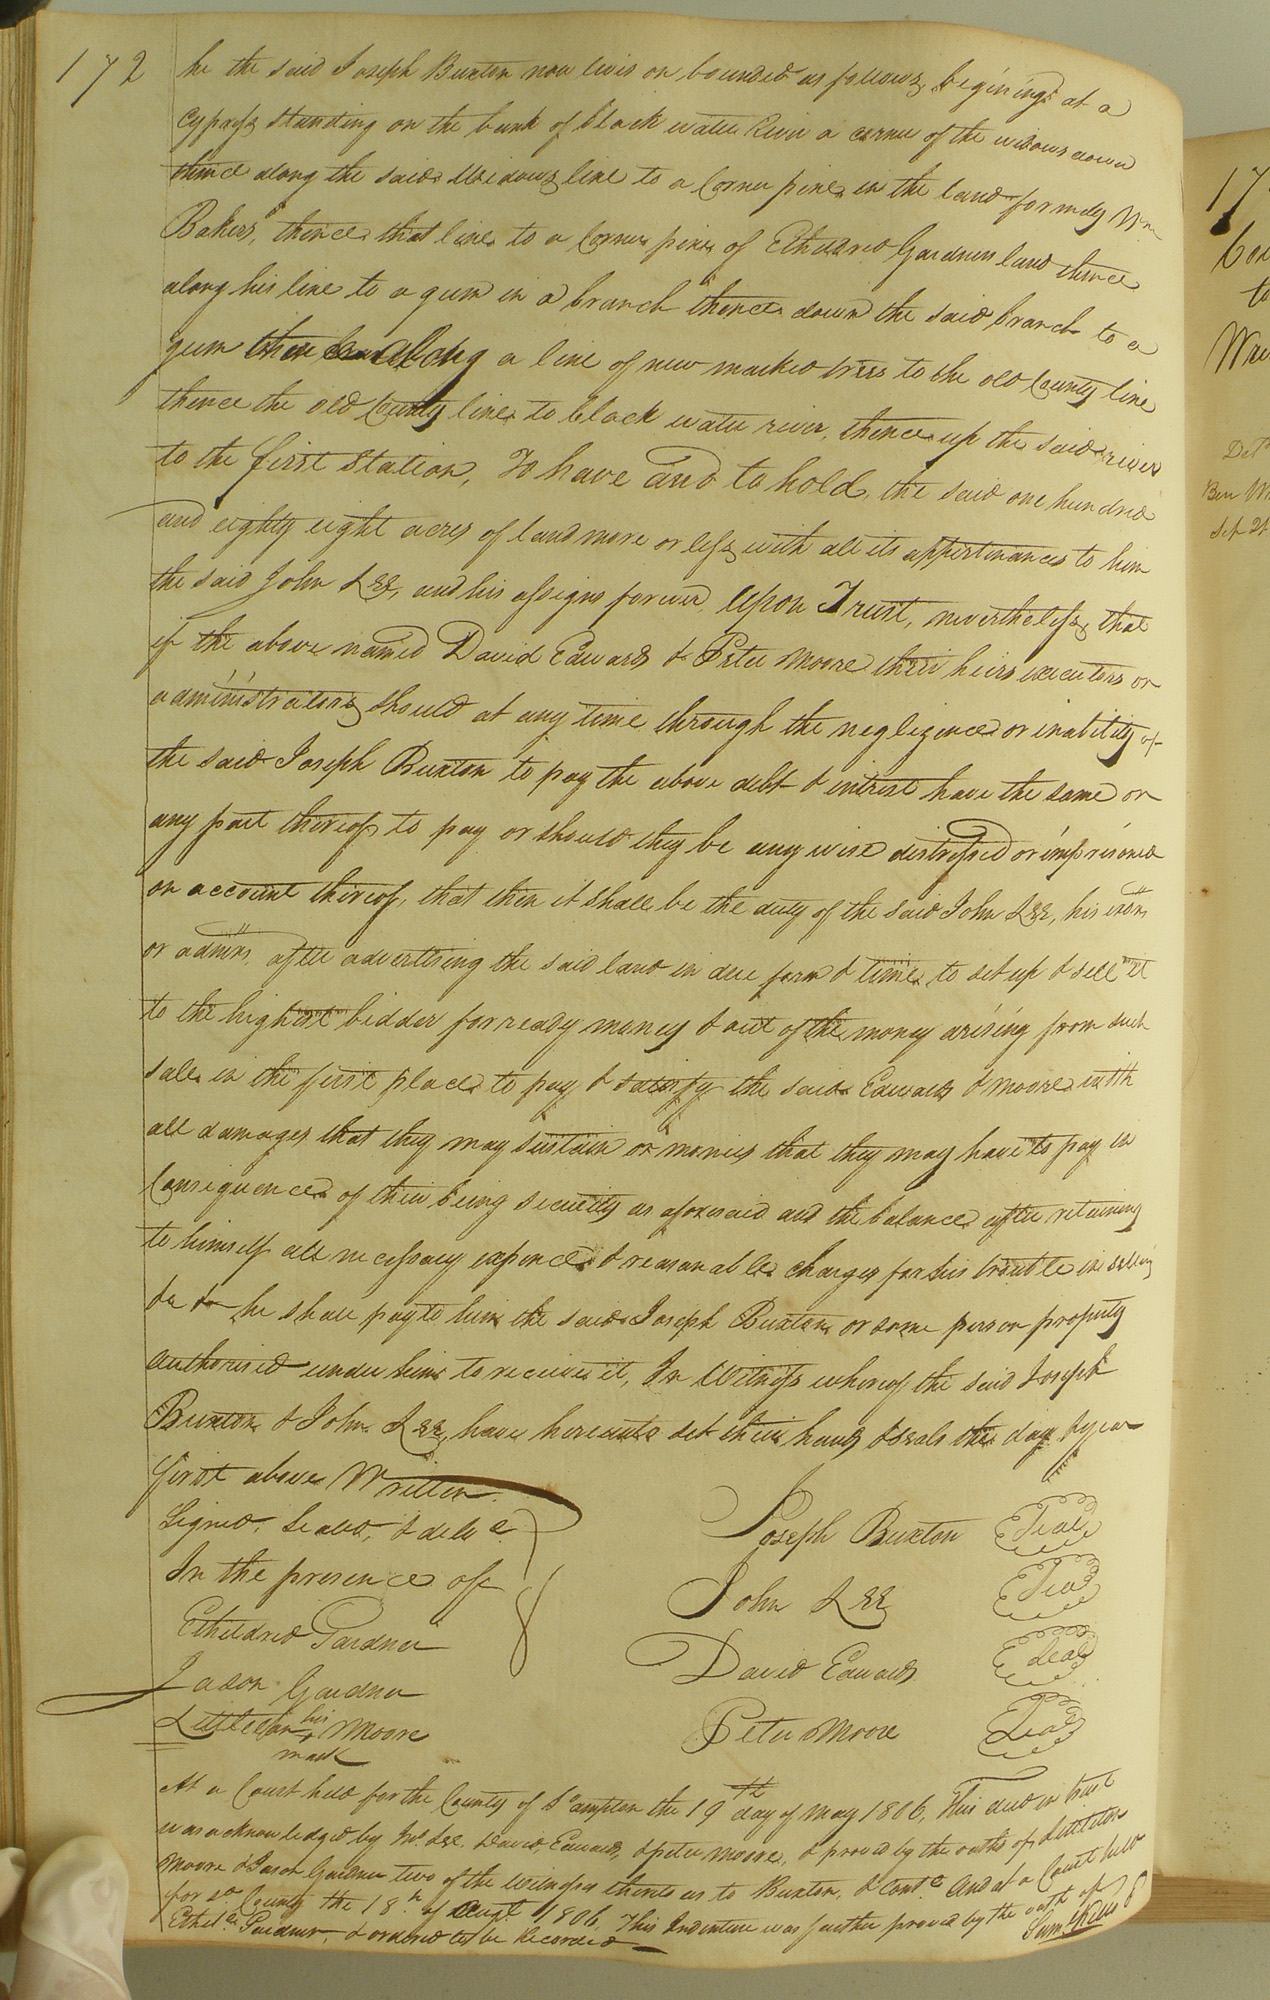 172
he the said Joseph Buxton now lives on bounded as follows, begining at a
cypress standing on the bank of black water River a corner of the widows dower
thence along the said Widows line to a Corner pine, in the land formely Wm
Bakers, thence that line to a Corner pine of Etheldred Gardners land thence
along his line to a gum in a branch thence down the said branch to a
gum thence along a line of new marked trees to the old County line
thence the old County line to black water river, thence up the said river
to the first Station, To have and to hold, the said one hundred
and eighty eight acres of land more or less, with all its appertinances to him
the said John Lee, and his assigns forever, Upon Trust, nevertheless, that
if the above named David Edwards & Peter Moore their heirs executors or
administrators, should at any time through the negligence or inability of
the said Joseph Buxton to pay the above debt & intrest have the same or
any part thereof to pay or should they be any wise distressed or imprisoned
on account thereof, that then it shall be the duty of the said John Lee, his exors
or admrs, after advertising the said land in due form & time, to set up & sell it
to the highest bidder for ready money & out of the money arising from such
sale in the first place to pay & satisfy the said Edwards & Moore with
all damages that they may sustain or monies that they may have to pay in
Consequence of their being security as aforesaid and the balance after retaining
to himself all necessary expences & reasonable charges for his trouble in selling
&c he shall pay to him the said Joseph Buxton or some person properly
authorised under him to receive it, In Witness whereof the said Joseph
Buxton & John Lee, have hereunto set their hands & seals the day & year
first above Written.
Signed, Sealed, & deld
In the presence of
Etheldred Gardner
Jason Gardner
Littleton his + Moore
mark
Joseph Buxton Seal
John Lee Seal
David Edwards Seal
Peter Moore Seal
At a Court held for the County of So ampton the 19th day of May 1806, This deed in trust
was acknowledged by Jno Lee David, Edwards, & peter moore, & proved by the oaths of Littleton
Moore & Jason Gardner two of the witnesses thereto as to Buxton, & contd And at a Court held
for sd County the 18th of Augt 1806, This Indenture was further proved by the oath of
Etheld Gardner, & ordered to be Recorded
17
to
Sep 2